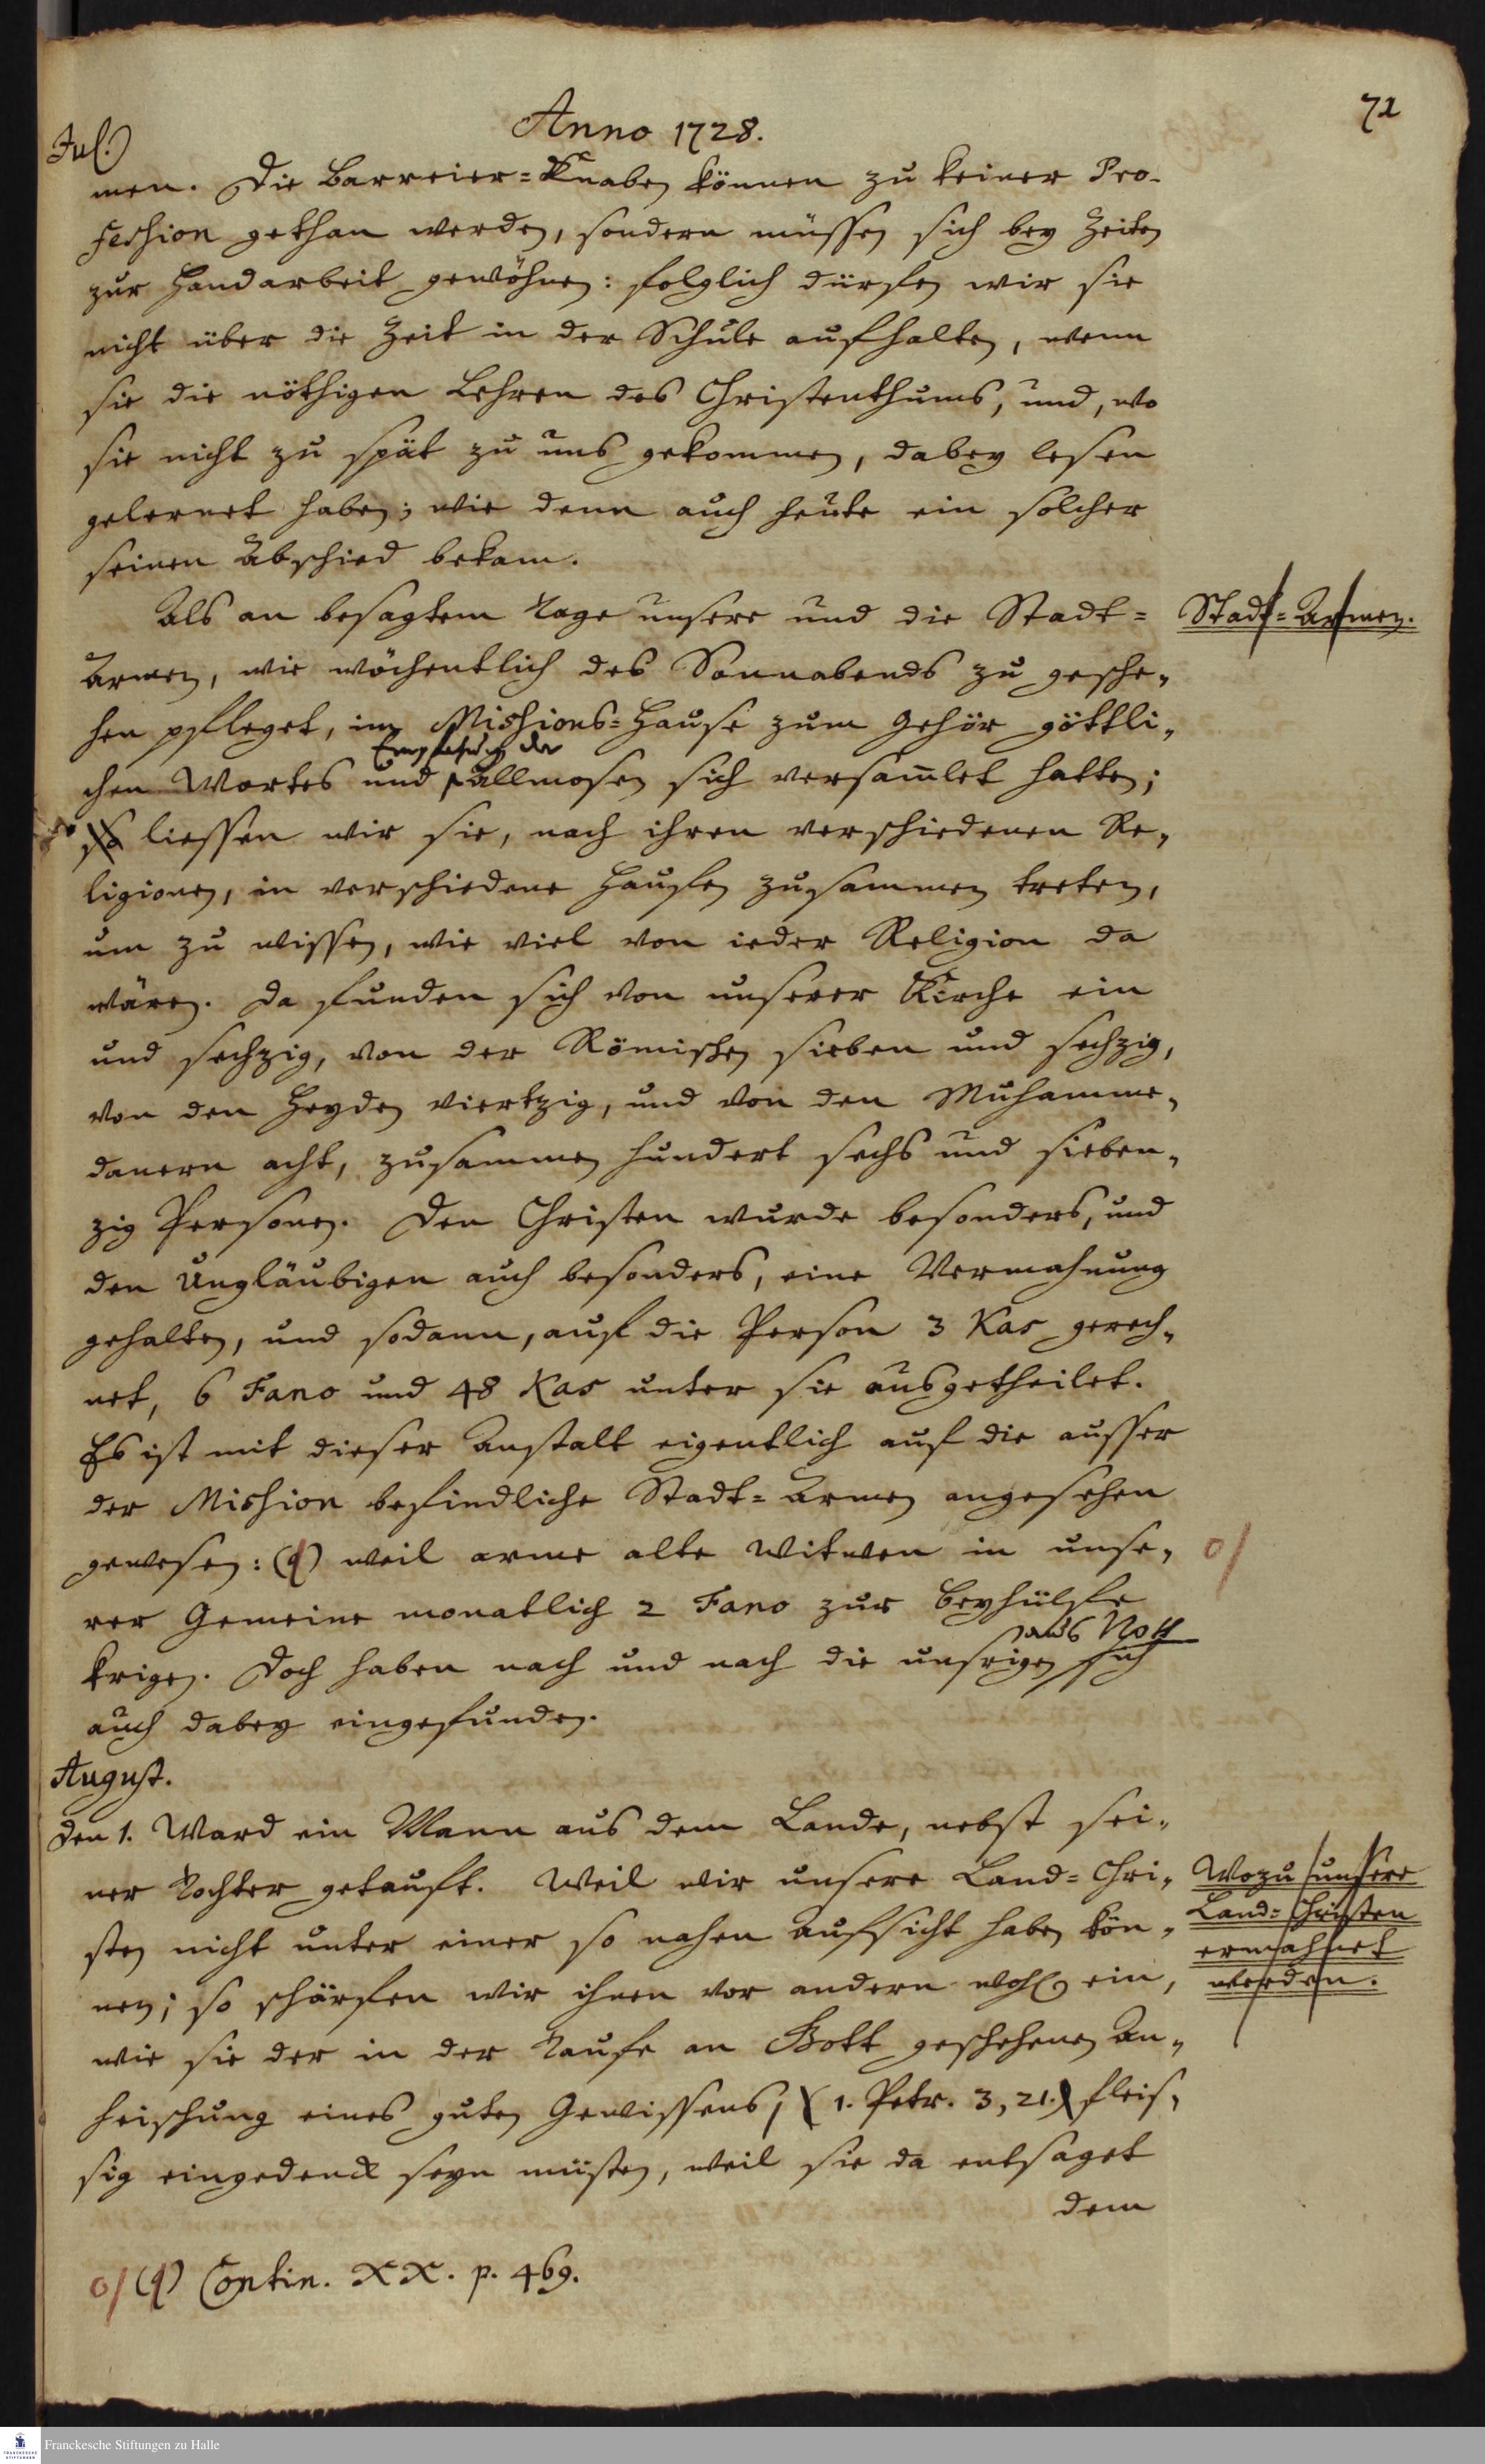 72
Anno 1728.
Jul.
men. Die Barreier=Knaben können zu keiner Pro-
feshion gethan werden, sondern müssen sich bey Zeiten
zur Handarbeit gewöhnen: folglich dürfen wir sie
nicht über die Zeit in der Schule aufhalten, wenn
sie die nöthigen Lehren des Christenthums, und, wo
sie nicht zu spät zu uns gekommen, dabey lesen
gelernet haben; wie denn auch heute ein solcher
seinen Abschied bekam.
Als an besagtem Tage unsere und die Stadt=
Stadt=Armen.
Armen, wie wöchentlich des Sonnabends zu gesche-
hen pfleget, im Mishions=Hause zum Gehör göttli-
Empfahung der
chen Wortes und Allmosen sich versam̅let hatten;
so so liessen wir sie, nach ihren verschiedenen Re-
ligionen, in verschiedene Haufen zusammen treten,
um zu wissen, wie viel von ieder Religion da
wären. Da funden sich von unserer Kirche ein
und sechzig, von der Römischen sieben und sechzig,
von den Heyden viertzig, und von den Muhamme-
danern acht, zusammen hundert sechs und sieben-
zig Personen. Den Christen wurde besonders, und
den Ungläubigen auch besonders, eine Vermahnung
gehalten, und sodann, auf die Person 3 Kas gerech-
net, 6 Fano und 48 Kas unter sie ausgetheilet.
Es ist mit dieser Anstalt eigentlich auf die ausser
der Mishion befindliche Stadt=Armen angesehen
gewesen: (q) weil arme alte Witwen in unse-
rer Gemeine monatlich 2 Fano zur Beyhülfe
aus Noth
krigen. Doch haben nach und nach die unsrigen sich
auch dabey eingefunden.
August.
den 1. Ward ein Mann aus dem Lande, nebst sei-
ner Tochter getauft. Weil wir unsere Land=Chri-
Wozu unsere
Land=Christen
ermahnet
werden.
sten nicht unter einer so nahen Aufsicht haben kön-
nen; so schärfen wir ihnen vor andern wohl ein,
wie sie der in der Taufe an Gott geschehenen An-
heischung eines guten Gewissens, (1. Petr. 3, 21.) fleis-
sig eingedenck seyn müsten, weil sie da entsaget
dem
(q) Contin. XX. p. 469.
Franckesche Stiftungen zu Halle